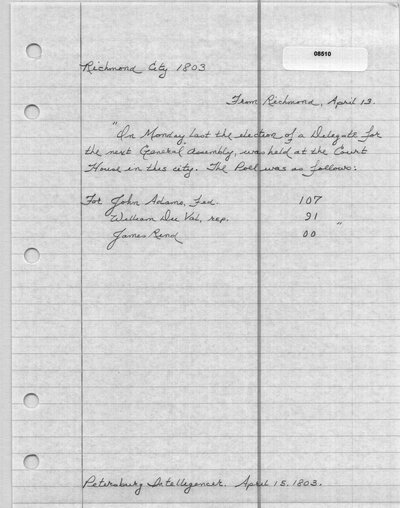 08510
Richmond City 1803
From Richmond, April 13.
"On Monday last the election of a Delegate for
the next General Assembly, was held at the Court
House in this city. The Poll was as follows:
For John Adams, Fed. 107
William Du Val, rep. 91 "
James Rind 00
Petersburg Intelligencer, April 15, 1803.